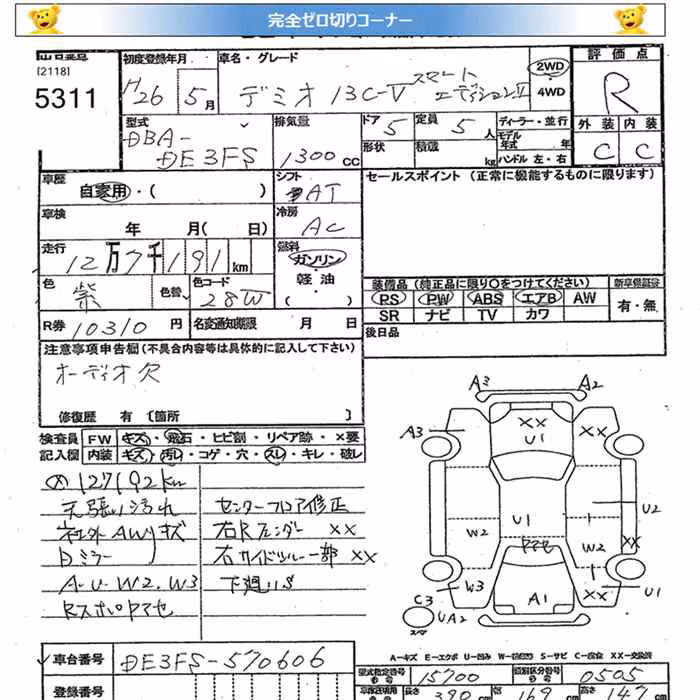 完全ゼロ切りコーナー
[2118]
5311
初度登録年月
H26 5月
車名・グレード
デミオ 13C-V スマートエディションⅡ
2WD
4WD
評価点
R
外装 内装
C C
型式
DBA-
DE3FS
排気量
1300cc
ドア 5
定員 5人
形状
積載 kg
ディーラー・並行
モデル年式 年
ハンドル 左・右
車歴
自家用・( )
シフト
AT
セールスポイント (正常に機能するものに限ります)
車検
年 月( 日)
冷房
AC
走行
12万7千191km
燃料
ガソリン
軽油
( )
色
紫
色替
色コード
28W
装備品(純正品に限り○をつけてください)
新車保証書
PS PW ABS エアB AW
有・無
SR ナビ TV カワ
R券 10310円
名変通知期限 月 日
後日品
注意事項申告欄(不具合内容等は具体的に記入して下さい)
オーディオ欠
修復歴 有 〔箇所 〕
検査員
記入欄
FW キズ・飛石・ヒビ割・リペア跡・×要
内装 キズ・汚レ・コゲ・穴・スレ・キレ・破レ
127192km
天張り汚れ
社外AWキズ
Dミラー
A.U.W2.W3
RスポPヤセ
センターフロア修正
右Rフェンダー XX
右サイドシル一部 XX
下廻りS
A3 A2
A3 XX U1 XX
U1 U2
W2 Pヤセ W2 XX
W3 A1 XX U1
C3
UA2
スペア
A-キズ E-エクボ U-凹み W-補修跡 S-サビ C-腐食 XX-交換済
車台番号 DE3FS-570606
型式指定番号 15700
類別区分番号 0505
登録番号
長さ 390cm
幅 169
高さ 147